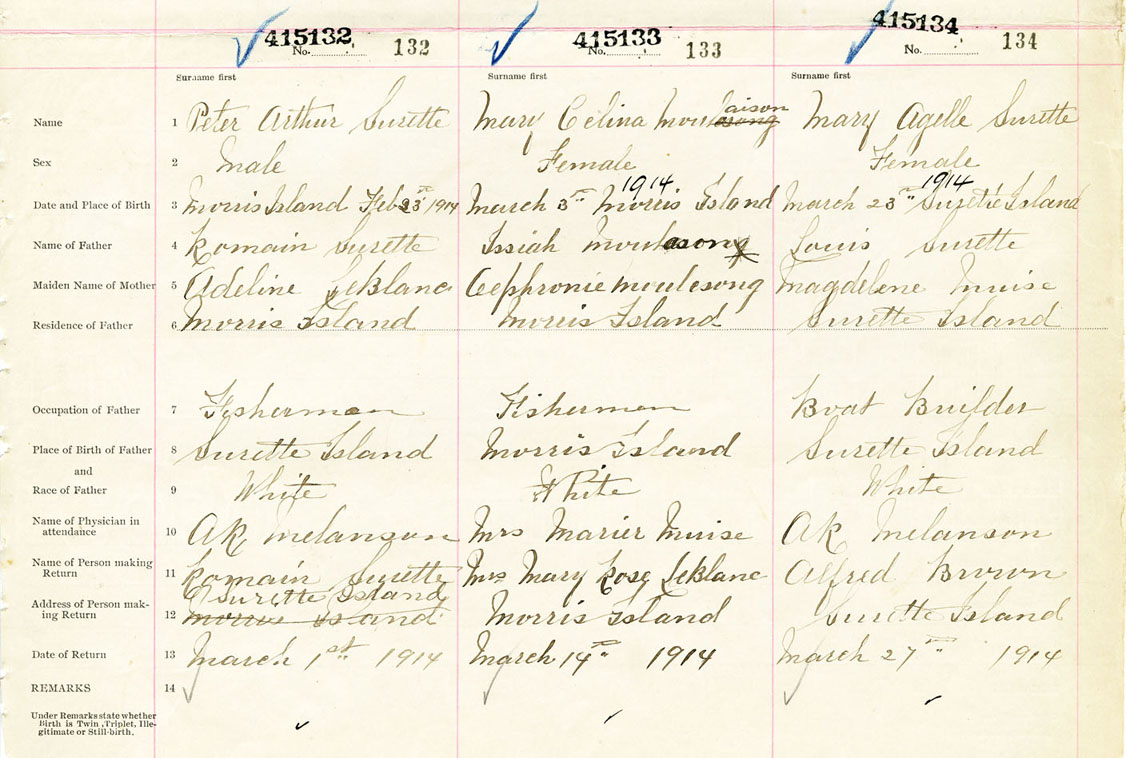 415132 415133 415134
No. 132 No. 133 No. 134
Surname first Surname first Surname first
aison
Name 1 Peter Arthur Surette Mary Celina Moulasong Mary Agelle Surette
Sex 2 Male Female Female
1914 1914
Date and Place of Birth 3 Morris Island Feb 23 1914 March 3rd Morris Island March 23rd Surette Island
Name of Father 4 Romain Surette Issiah Moulasong Louis Surette
Maiden Name of Mother 5 Adeline LeBlanc Cephronie Moulesong Magdelene Muise
Residence of Father 6 Morris Island Morris Island Surette Island
Occupation of Father 7 Fisherman Fisherman Boat Builder
Place of Birth of Father 8 Surette Island Morris Island Surette Island
and
Race of Father 9 White White White
Name of Physician in
attendance 10 AR Melanson Mrs Marier Muise AR Melanson
Name of Person making
Return 11 Romain Surette Mrs Mary Rose LeBlanc Alfred Brown
Surette Island
Address of Person mak-
ing Return 12 Morris Island Morris Island Surette Island
Date of Return 13 March 1st 1914 March 14th 1914 March 27th 1914
REMARKS 14
Under Remarks state whether
Birth is Twin, Triplet, Ille-
gitimate or Still-birth.